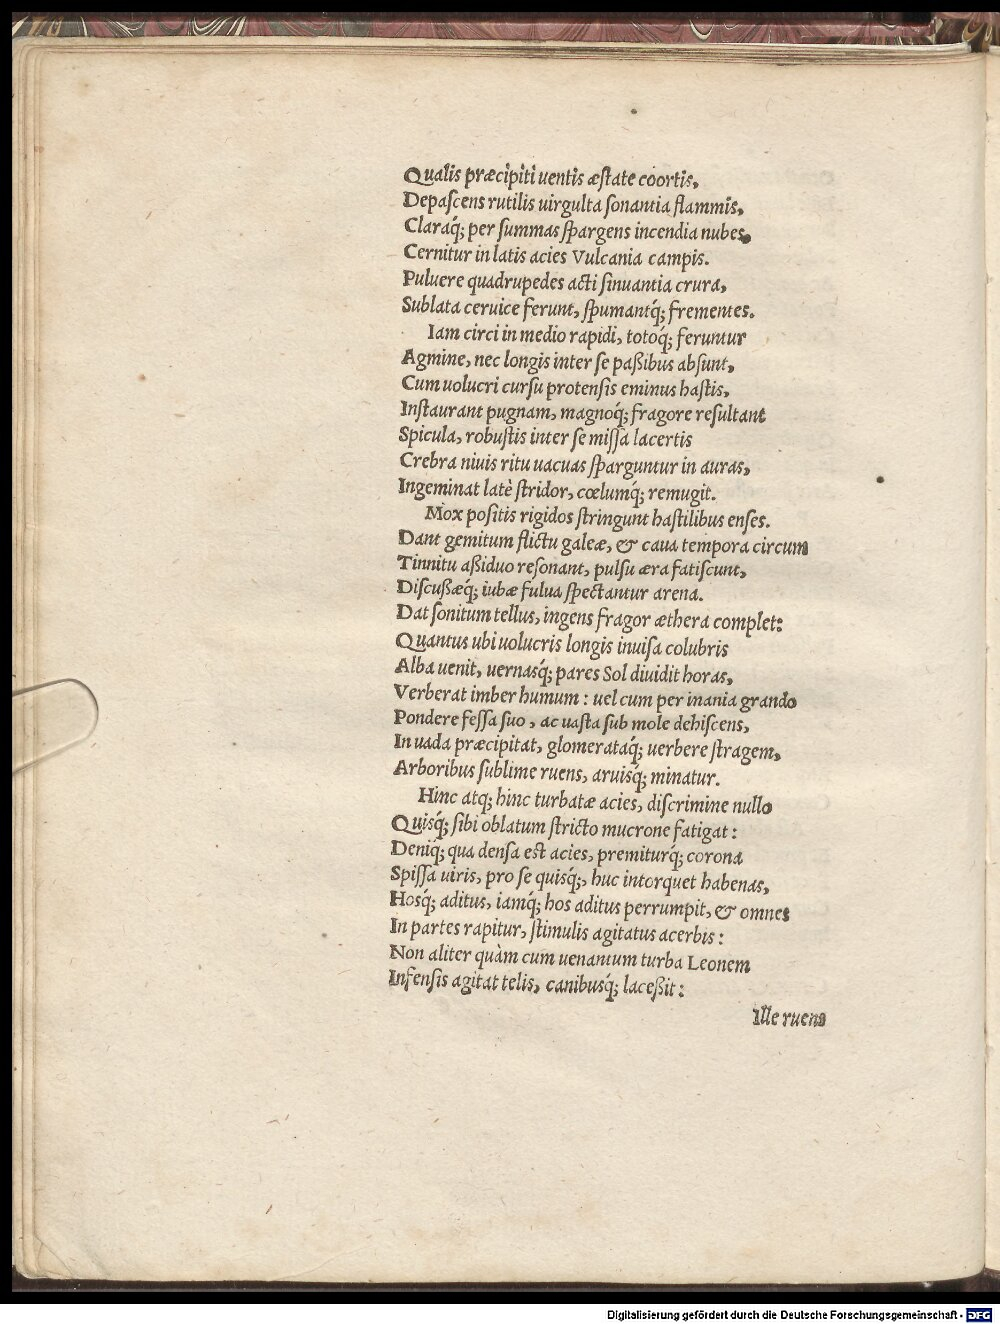 Qualis præcipiti uentis æstate coortis,
Depaſcens rutilis uirgulta ſonantia flammis,
Claraq́; per ſummas ſpargens incendia nubes,
Cernitur in latis acies Vulcania campis.
Puluere quadrupedes acti ſinuantia crura,
Sublata ceruice ferunt, ſpumantq́; frementes.
Iam circi in medio rapidi, totoq́; feruntur
Agmine, nec longis inter ſe paßibus abſunt,
Cum uolucri curſu protenſis eminus haſtis,
Inſtaurant pugnam, magnoq́; fragore reſultant
Spicula, robuſtis inter ſe miſſa lacertis
Crebra niuis ritu uacuas ſparguntur in auras,
Ingeminat latè ſtridor, cœlumq́; remugit.
Mox poſitis rigidos ſtringunt haſtilibus enſes.
Dant gemitum flictu galeæ, & caua tempora circum
Tinnitu aßiduo reſonant, pulſu æra fatiſcunt,
Diſcußæq́; iubæ fulua ſpectantur arena.
Dat ſonitum tellus, ingens fragor æthera complet:
Quantus ubi uolucris longis inuiſa colubris
Alba uenit, uernasq́; pares Sol diuidit horas,
Verberat imber humum : uel cum per inania grando
Pondere feſſa ſuo, ac uaſta ſub mole dehiſcens,
In uada præcipitat, glomerataq́; uerbere ſtragem,
Arboribus ſublime ruens, aruisq́; minatur.
Hinc atq; hinc turbatæ acies, diſcrimine nullo
Quisq́; ſibi oblatum ſtricto mucrone fatigat :
Deniq́; qua denſa est acies, premiturq́; corona
Spiſſa uiris, pro ſe quisq́;, huc intorquet habenas,
Hosq́; aditus, iamq́; hos aditus perrumpit, & omnes
In partes rapitur, ſtimulis agitatus acerbis :
Non aliter quàm cum uenantum turba Leonem
Infenſis agitat telis, canibusq́; laceßit :
Ille ruens
Digitalisierung gefördert durch die Deutsche Forschungsgemeinschaft - DFG